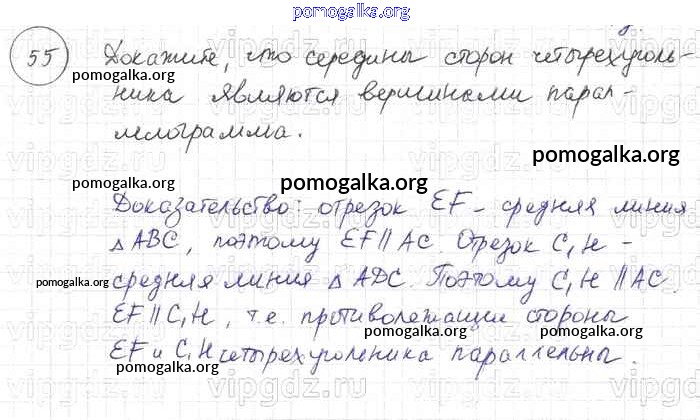 pomogalka.org
55 Докажите, что середины сторон четырехуголь-
pomogalka.org
ника являются вершинами парал-
лелограмма.
pomogalka.org
pomogalka.org
pomogalka.org
Доказательство: отрезок EF - средняя линия
△ABC, поэтому EF || AC. Отрезок C₁H -
pomogalka.org
средняя линия △ADC. Поэтому C₁H || AC.
pomogalka.org
EF || C₁H, т.е. противолежащие стороны
pomogalka.org
pomogalka.org
EF и C₁H четырехугольника параллельны.
pomogalka.org
vipgdz.ru